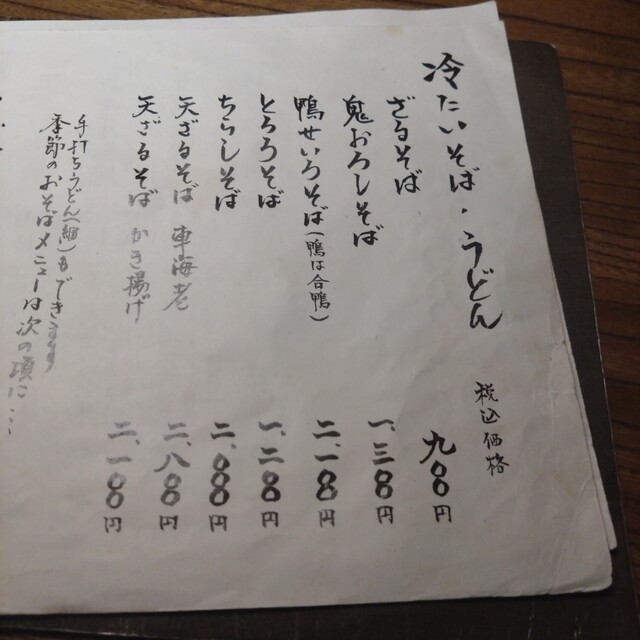 冷たいそば・うどん
税込価格
ざるそば 九〇〇円
鬼おろしそば 一、三〇〇円
鴨せいろそば(鴨は合鴨) 二、一〇〇円
とろろそば 一、二〇〇円
ちらしそば 二、〇〇〇円
天ざるそば 車海老 二、八〇〇円
天ざるそば かき揚げ 二、一〇〇円
手打ちうどん(細)もできます
季節のおそばメニューは次の頃に…